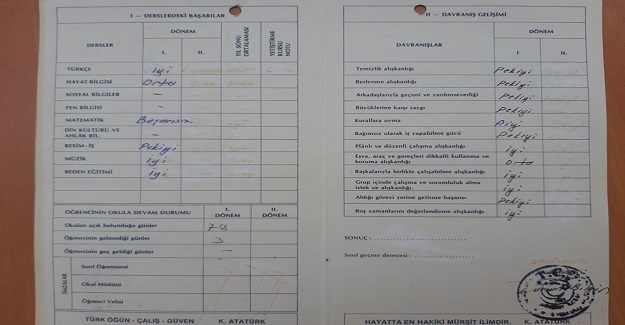 I — DERSLERDEKİ BAŞARILAR
DERSLER
DÖNEM
I.
II.
YIL SONU ORTALAMASI
YETİŞTİRME KURSU NOTU
TÜRKÇE iyi
HAYAT BİLGİSİ Orta
SOSYAL BİLGİLER —
FEN BİLGİSİ —
MATEMATİK Başarısız
DİN KÜLTÜRÜ VE
AHLÂK BİL. —
RESİM-İŞ Pekiyi
MÜZİK iyi
BEDEN EĞİTİMİ iyi
ÖĞRENCİNİN OKULA DEVAM DURUMU
I. DÖNEM
II. DÖNEM
Okulun açık bulunduğu günler
Öğrencinin gelmediği günler 3
Öğrencinin geç geldiği günler —
İMZALAR
Sınıf Öğretmeni
Okul Müdürü
Öğrenci Velisi
TÜRK ÖĞÜN - ÇALIŞ - GÜVEN K. ATATÜRK
II — DAVRANIŞ GELİŞİMİ
DAVRANIŞLAR
DÖNEM
I.
II.
Temizlik alışkanlığı Pekiyi
Beslenme alışkanlığı Pekiyi
Arkadaşlarıyla geçimi ve yardımseverliği Pekiyi
Büyüklerine karşı saygı Pekiyi
Kurallara uyma
Bağımsız olarak iş yapabilme gücü Pekiyi
Plânlı ve düzenli çalışma alışkanlığı iyi
Eşya, araç ve gereçleri dikkatli kullanma ve
koruma alışkanlığı Orta
Başkalarıyla birlikte çalışabilme alışkanlığı iyi
Grup içinde çalışma ve sorumluluk alma
istek ve alışkanlığı. iyi
Aldığı görevi yerine getirme başarısı Pekiyi
Boş zamanlarını değerlendirme alışkanlığı iyi
SONUÇ :
Sınıf geçme derecesi :
HAYATTA EN HAKİKİ MÜRŞİT İLİMDİR. K. ATATÜRK